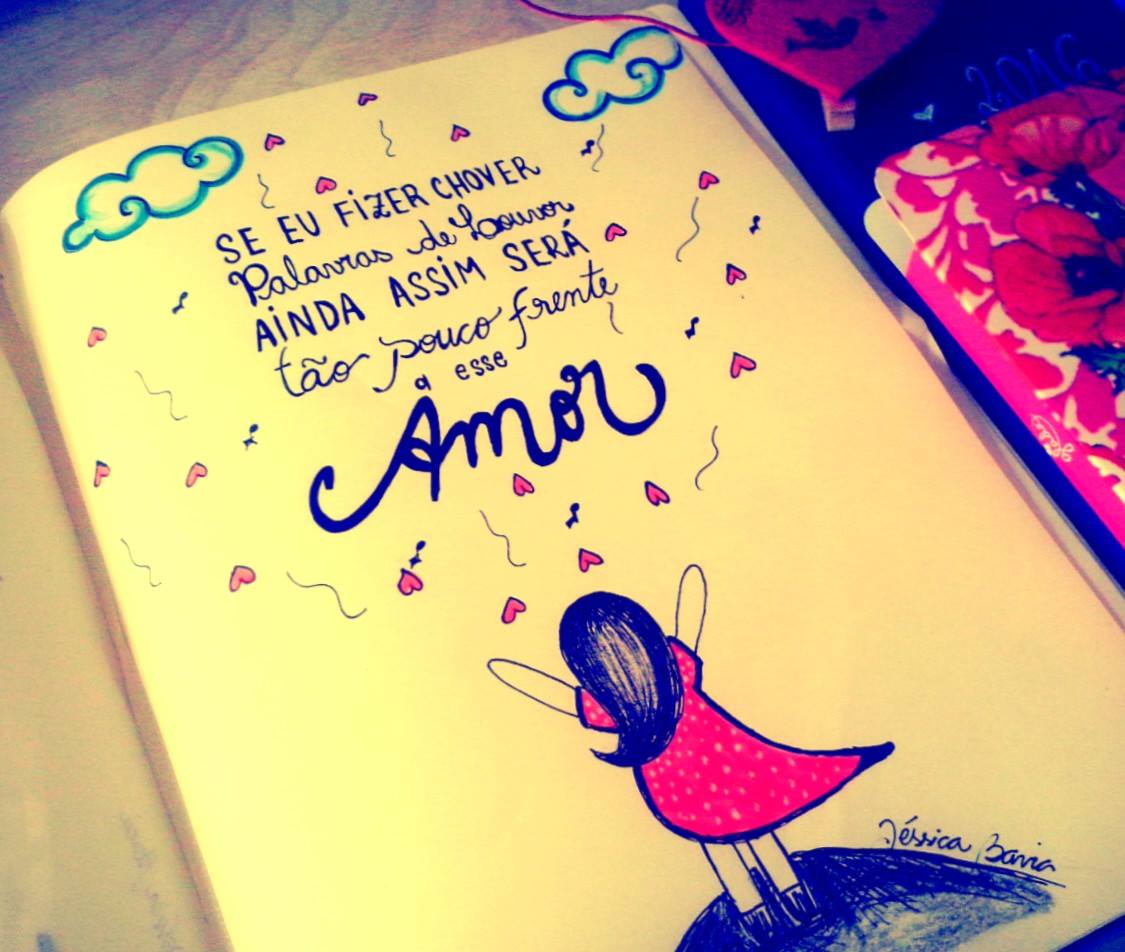 SE EU FIZER CHOVER
Palavras de Louvor
AINDA ASSIM SERÁ
tão pouco frente
a esse
Amor
Jéssica
2016